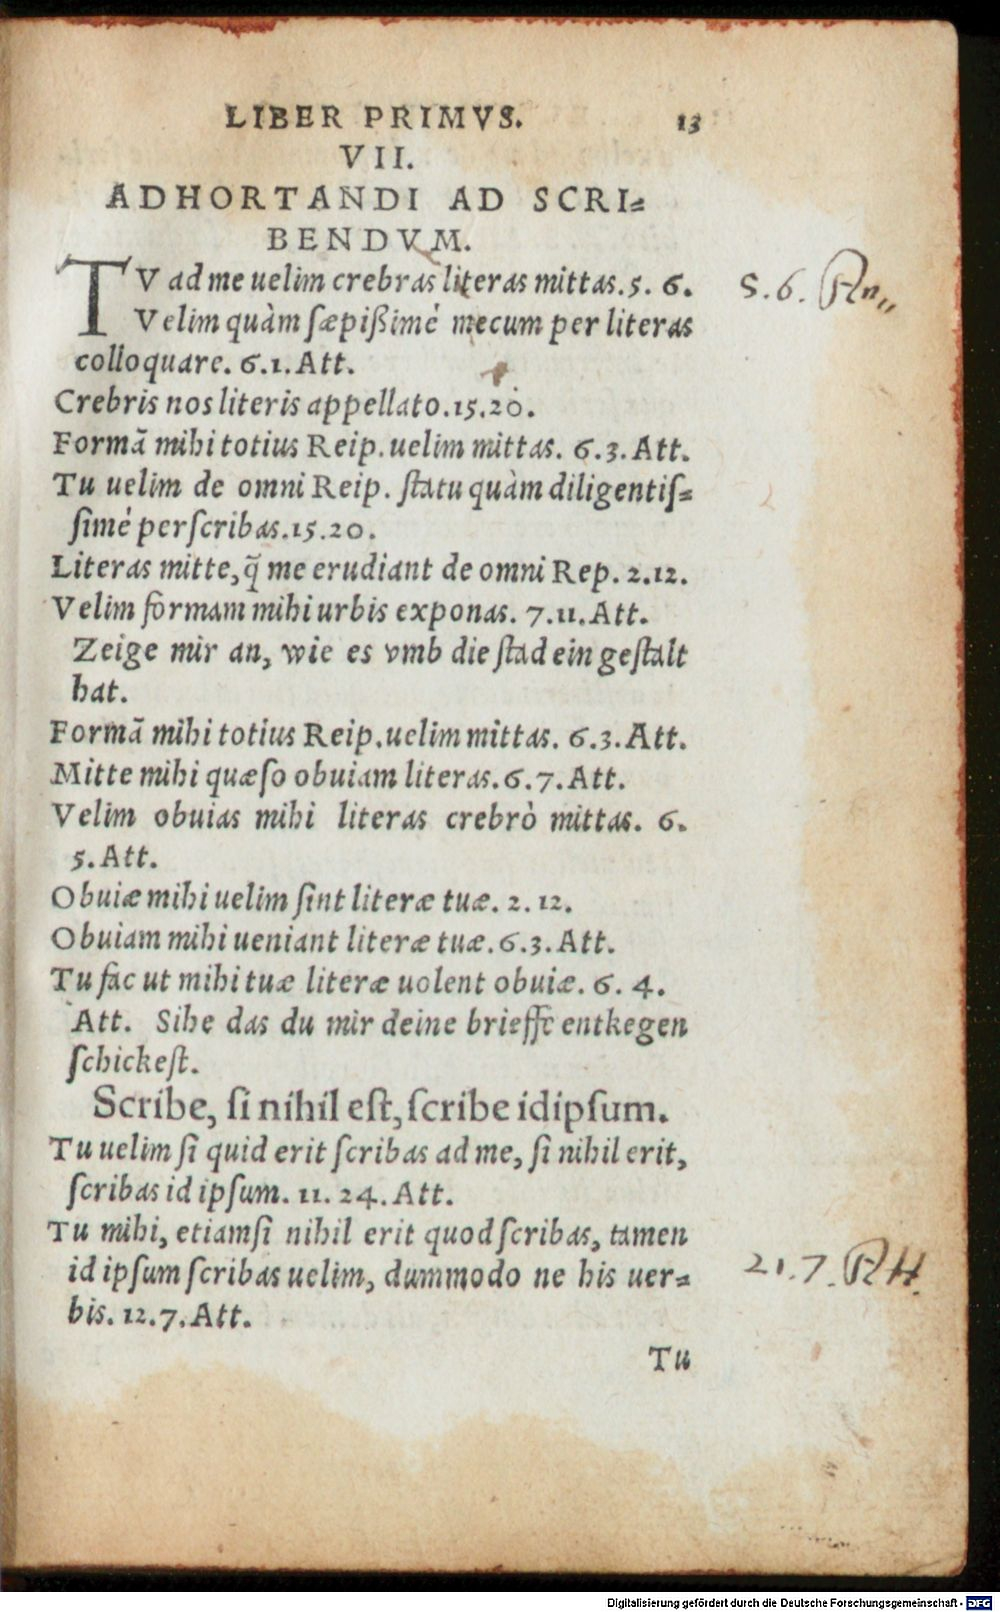 LIBER PRIMVS. 13
VII.
ADHORTANDI AD SCRI⸗
BENDVM.
TV ad me uelim crebras literas mittas. 5. 6.
Velim quàm sæpißimé mecum per literas
colloquare. 6.1. Att.
Crebris nos literis appellato. 15. 20.
Formã mihi totius Reip. uelim mittas. 6.3. Att.
Tu uelim de omni Reip. statu quàm diligentiſ⸗
ſimé perſcribas. 15. 20.
Literas mitte, q̃ me erudiant de omni Rep. 2. 12.
Velim formam mihi urbis exponas. 7. 11. Att.
Zeige mir an, wie es vmb die ſtad ein geſtalt
hat.
Formã mihi totius Reip. uelim mittas. 6.3. Att.
Mitte mihi quæſo obuiam literas. 6.7. Att.
Velim obuias mihi literas crebrò mittas. 6.
5. Att.
Obuiæ mihi uelim ſint literæ tuæ. 2. 12.
Obuiam mihi ueniant literæ tuæ. 6.3. Att.
Tu fac ut mihi tuæ literæ uolent obuiæ. 6. 4.
Att. Sihe das du mir deine brieffe entkegen
ſchickeſt.
Scribe, ſi nihil eſt, ſcribe idipſum.
Tu uelim ſi quid erit ſcribas ad me, ſi nihil erit,
ſcribas id ipſum. 11. 24. Att.
Tu mihi, etiamſi nihil erit quod ſcribas, tamen
id ipſum ſcribas uelim, dummodo ne his uer⸗
bis. 12.7. Att.
Tu
5. 6.
21. 7.
Digitalisierung gefördert durch die Deutsche Forschungsgemeinschaft - DFG